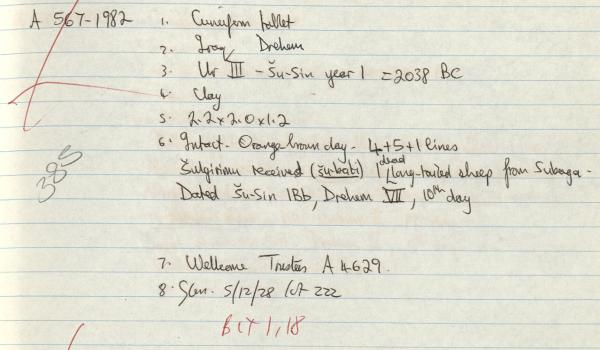 A 567-1982
1. Cuneiform tablet
2. Iraq, Drehem
3. Ur III - Šu-Sin year 1 = 2038 BC
4. Clay
5. 2.2 x 2.0 x 1.2
6. Intact. Orange brown clay - 4+5+1 lines
Šulgirimu received (šu-bati) 1 dead long-tailed sheep from Subaga -
Dated Šu-Sin 1Bb, Drehem VII, 10th day
385
7. Wellcome Trustees A 4629.
8. 5/12/28 lot 222
BCT 1, 18